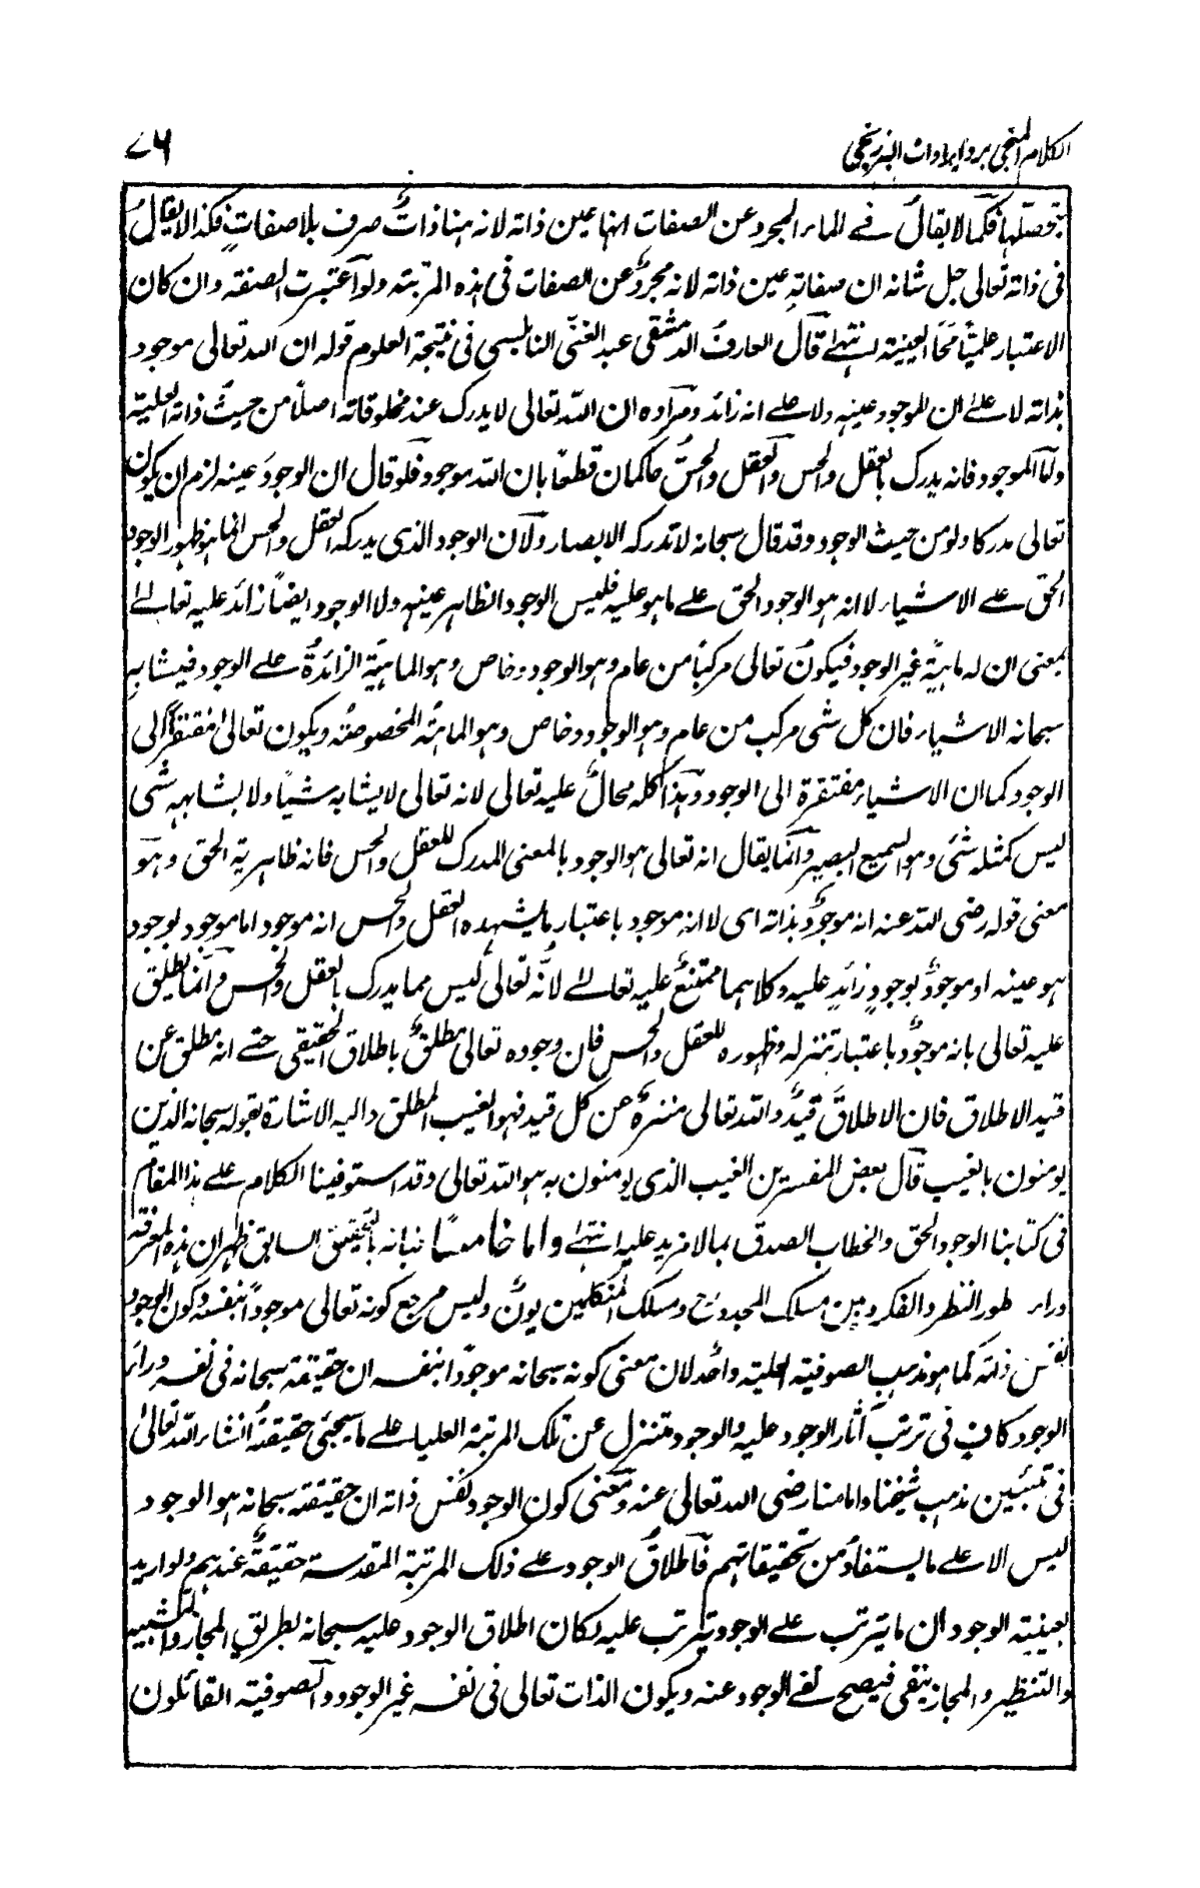 الكلام المنجي برد ايرادات البرزنجي
٧٦
تحصلها فكما لا يقال في الماء المجرد عن الصفات انها عين ذاته لانه هنا ذات صرف بلا صفات فكذا لا يقال
في ذاته تعالى جل شانه ان صفاته عين ذاته لانه مجرد عن الصفات في هذه المرتبة ولو اعتبرت الصفة وان كان
الاعتبار علميا محا العينية انتهى قال العارف الدمشقي عبد الغني النابلسي في نتيجة العلوم قوله ان الله تعالى موجود
بذاته لا على ان الموجود عينه ولا على انه زائد ومراده ان الله تعالى لا يدرك عند مخلوقاته اصلا من حيث ذاته العلية
واما الموجود فانه يدرك بالعقل والحس والعقل والحس حاكمان قطعا بان الله موجود فلو قال ان الوجود عينه لزم ان يكون
تعالى مدركا ولو من حيث الوجود وقد قال سبحانه لا تدركه الابصار ولان الوجود الذى يدركه العقل والحس انما هو ظهور الوجود
الحق على الاشياء لا انه هو الوجود الحق على ما هو عليه فليس الوجود الظاهر عينه ولا الوجود ايضا زائد عليه تعالى
بمعنى ان له ماهية غير الوجود فيكون تعالى مركبا من عام وهو الوجود وخاص وهو الماهية الزائدة على الوجود فيشابه
سبحانه الاشياء فان كل شى مركب من عام وهو الوجود وخاص وهو الماهية المخصوصة ويكون تعالى مفتقرا الى
الوجود كما ان الاشياء مفتقرة الى الوجود وهذا كله محال عليه تعالى لانه تعالى لا يشابه شيا ولا يشابهه شى
ليس كمثله شى وهو السميع البصير وانما يقال انه تعالى هو الوجود بالمعنى المدرك للعقل والحس فانه ظاهرية الحق وهو
معنى قوله رضى الله عنه انه موجود بذاته اى لا انه موجود باعتبار ما يشهده العقل والحس انه موجود اما موجود بوجود
هو عينه او موجود بوجود زائد عليه وكلاهما ممتنع عليه تعالى لانه تعالى ليس مما يدرك بالعقل والحس وانما يطلق
عليه تعالى بانه موجود باعتبار تنزله وظهوره للعقل والحس فان وجوده تعالى مطلق باطلاق الحقيقى حتى انه مطلق عن
قيد الاطلاق فان الاطلاق قيد والله تعالى منزه عن كل قيد فهو الغيب المطلق واليه الاشارة بقوله سبحانه الذين
يومنون بالغيب قال بعض المفسرين الغيب الذى يومنون به هو الله تعالى وقد استوفينا الكلام على هذا المقام
فى كتابنا الوجود الحق والخطاب الصدق بما لا مزيد عليه انتهى واما خامسا فبانه بالتحقيق السابق ظهر ان هذه المعرفة
وراء طور النظر والفكر وبين مسلك المجدد رح ومسلك المتكلمين بون وليس مرجع كونه تعالى موجودا بنفسه وكون الوجود
نفس ذاته كما هو مذهب الصوفية العلية واحد لان معنى كونه سبحانه موجودا بنفسه ان حقيقة سبحانه فى نفسه وراء
الوجود كاف فى ترتب آثار الوجود عليه والوجود متنزل عن تلك المرتبة العليا على ما سيجئى حقيقة انشاء الله تعالى
فى تبئين مذهب شيخنا وامامنا رضى الله تعالى عنه ومعنى كون الوجود نفس ذاته ان حقيقة سبحانه هو الوجود
ليس الا على ما يستفاد من تحقيقاتهم فاطلاق الوجود على ذلك المرتبة المقدسة حقيقة عندهم ولو اريد
بعينية الوجود ان ما يترتب على الوجود يترتب عليه لكان اطلاق الوجود عليه سبحانه بطريق المجاز والتشبيه
والتنظير والمجاز ينفى فيصح نفى الوجود عنه ويكون الذات تعالى فى نفسه غير الوجود والصوفية القائلون